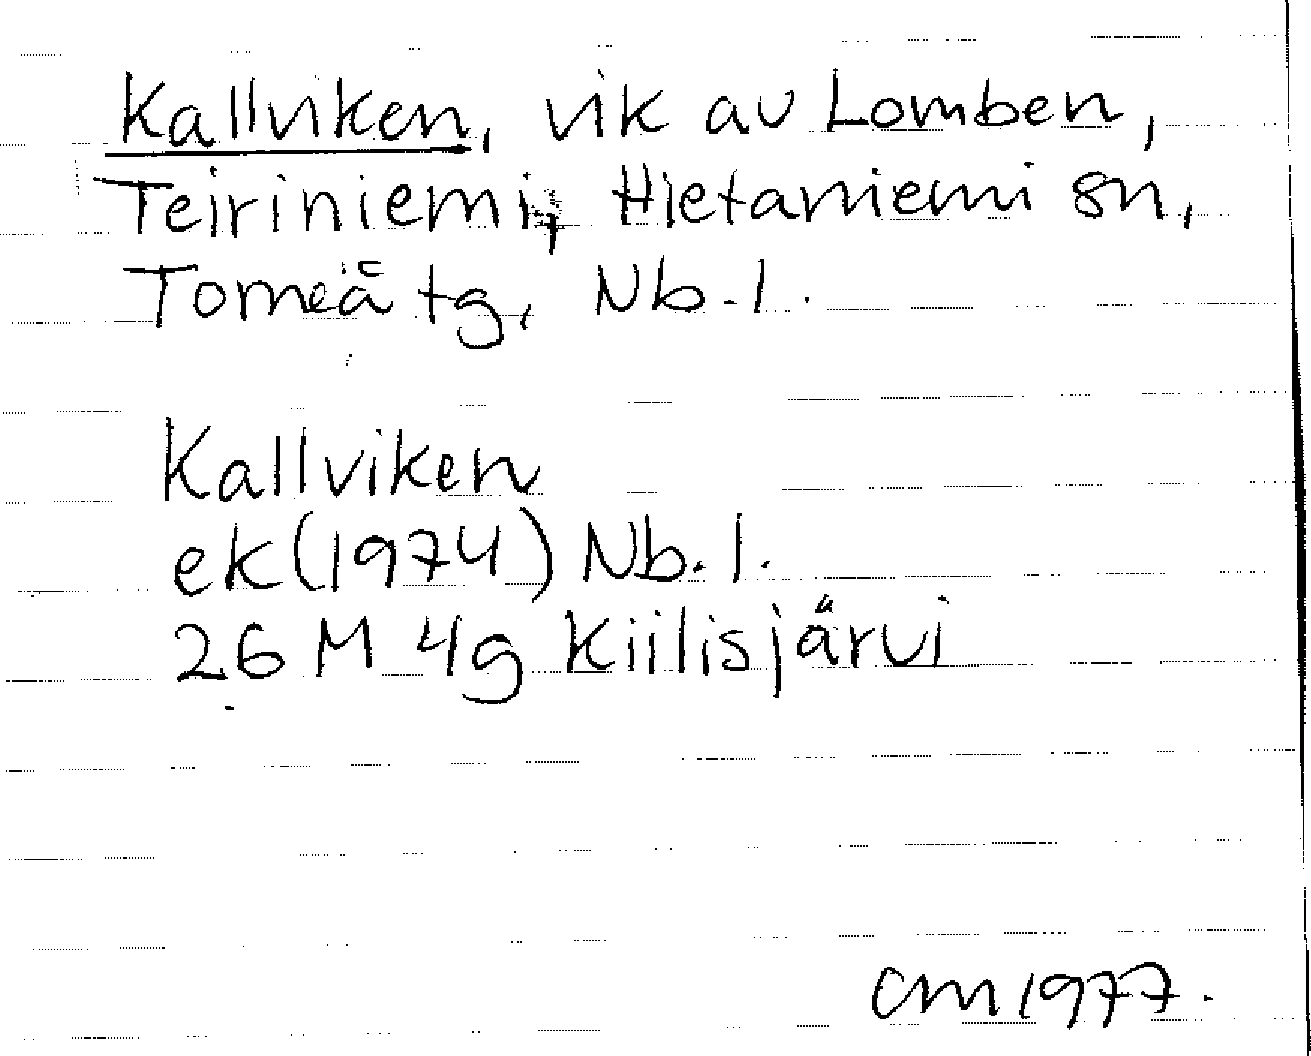 Kallviken, vik av Lomben,
Teiriniemi, Hietaniemi sn,
Torneå tg, Nb. l.
Kallviken
ek (1974) Nb. l.
26 M 4g Kiilisjärvi
CM 1977.